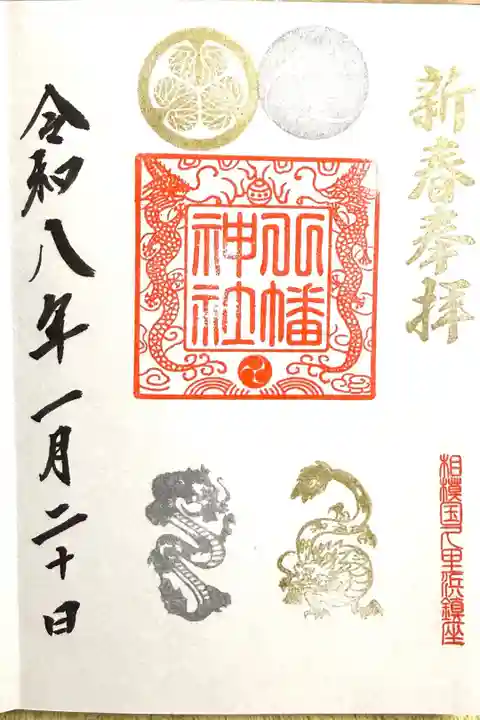 新春奉拝
相模国久里浜鎮座
八幡
神社
令和八年一月二十日